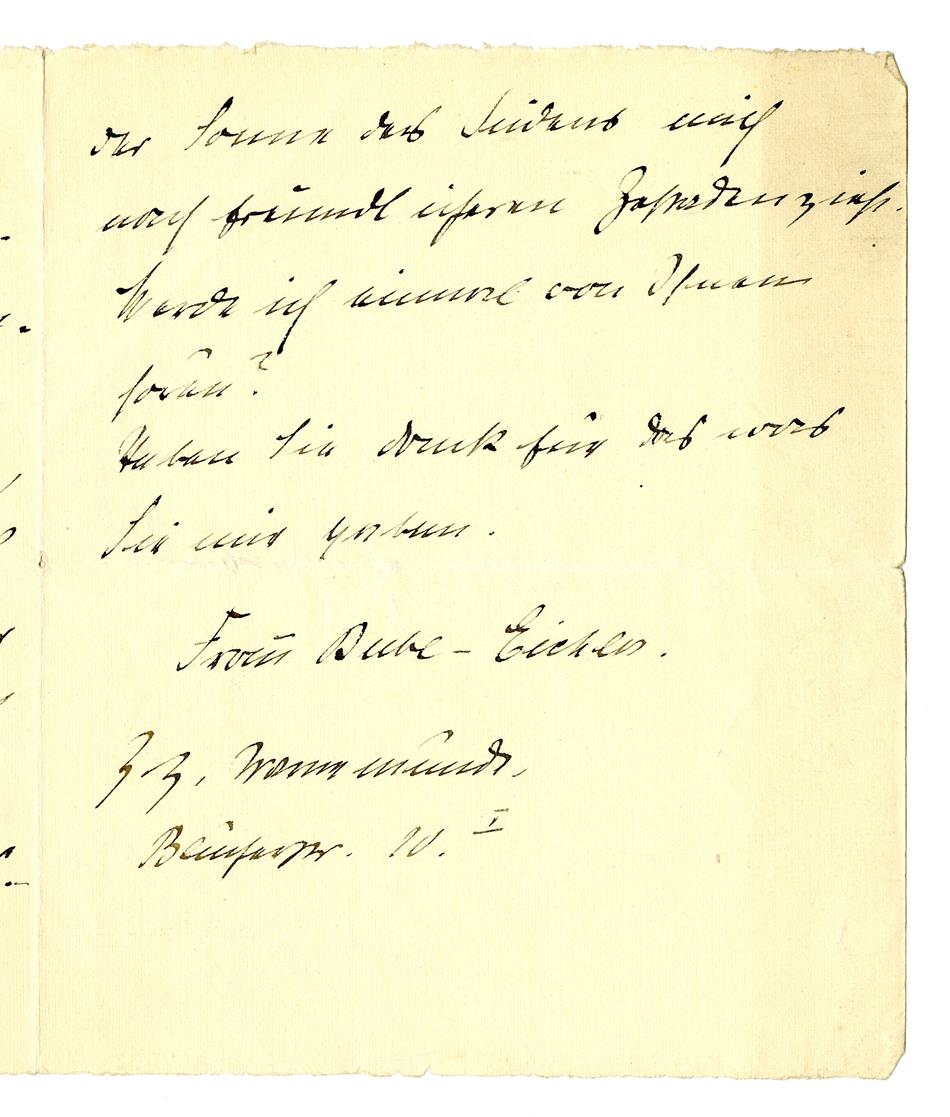 der Sonne des Südens mich
nach freundlicheren Gestaden zieht.
Werde ich einmal von Ihnen
hören?
Haben Sie Dank für das was
Sie mir gaben.
Frau Bube-Eichler.
z. Z. Warnemünde.
Blücherstr. 10. I